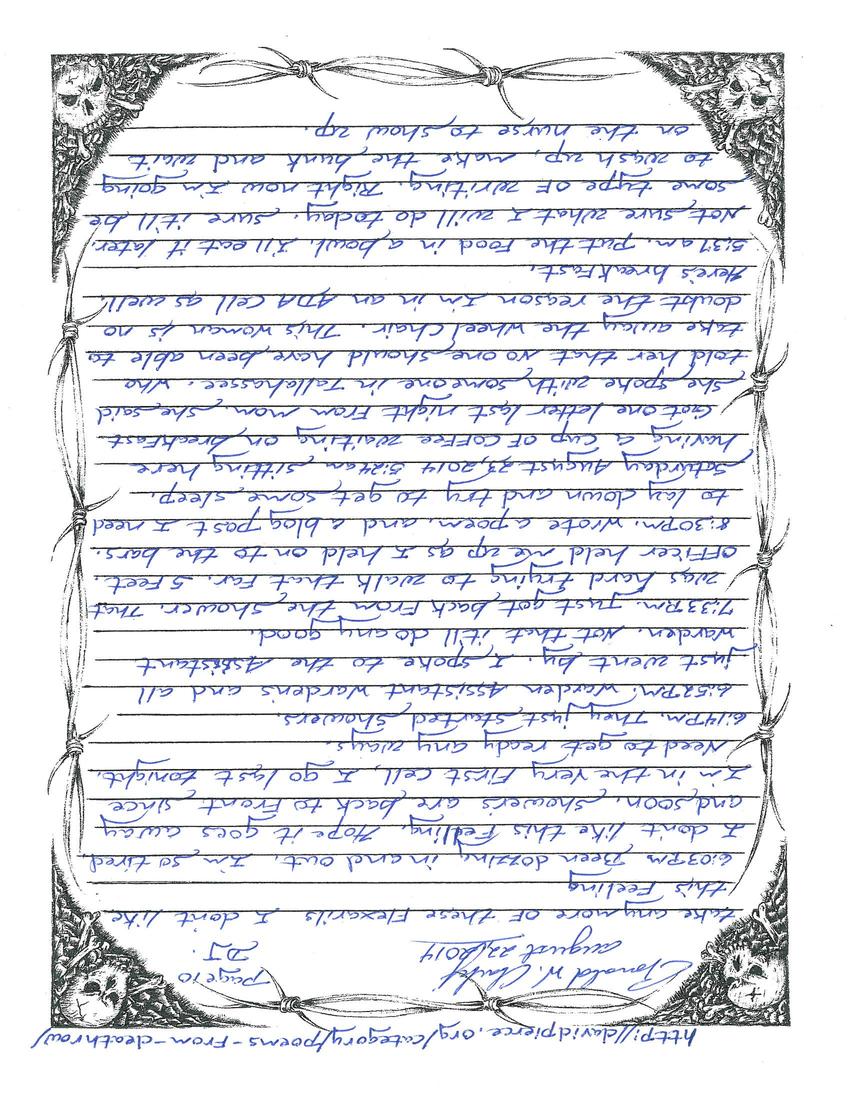 http://davidpierce.org/category/poems-from-deathrow/
Ronald W. Clark Jr Page 10
august 22, 2014 DJ.
take anymore OF these Flexerils I don't like
this Feeling
6:03 Pm Been dozzing in and out. I'm so tired
I don't like this Feeling. Hope it goes away
and soon. Showers are back to Front since
I'm in the very First cell, I go last tonight.
Need to get ready any ways.
6:14 Pm. They just started showers.
6:52 Pm. Warden Assistant wardens and all
just went by. I spoke to the Assistant
warden. Not that it'll do any good.
7:33 Pm. Just got back From the shower. That
was hard trying to walk that Far. 5 Feet.
OFFicer held me up as I held on to the bars.
8:30 Pm. wrote a poem, and, a blog post I need
to lay down and try to get some sleep.
Saturday August 23, 2014 5:24 am, sitting here
having a cup OF COFFee waiting on breakFast
Got one letter last night From mom. She said
she spoke with someone in Tallahassee. who
told her that No one should have been able to
take away the wheel chair. This woman is no
doubt the reason I'm in an ADA Cell as well.
Here's breakFast.
5:37 am. Put the Food in a bowl. I'll eat it later.
Not sure what I will do today. Sure it'll be
some type OF writing. Right now I'm going
to wash up, make the bunk and wait
on the nurse to show up.